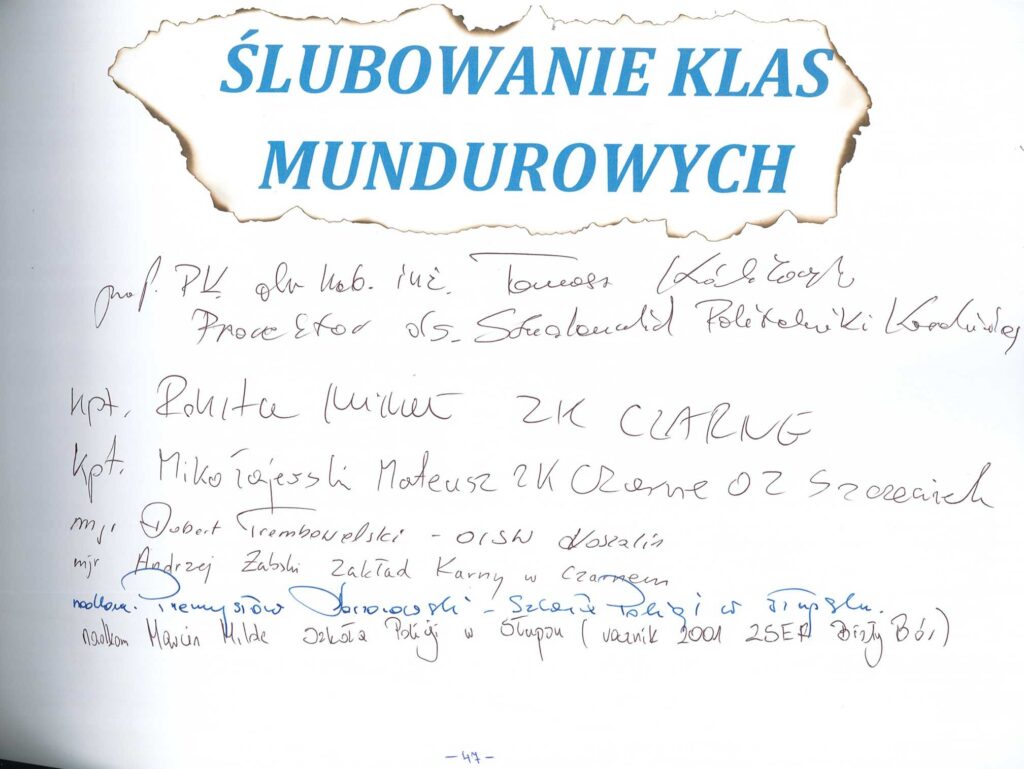 ŚLUBOWANIE KLAS
MUNDUROWYCH
prof. PK. dr hab. inż. Tomasz
Prorektor ds. Politechniki
kpt. Rokita ZK CZARNE
kpt. Mikołajewski Mateusz ZK Czarne OZ Szczecinek
mjr Trembowelski - OISW Koszalin
mjr Andrzej Żabski Zakład Karny w Czarnem
nadkom. Przemysław - Szkoła Policji w Słupsku.
nadkom Marcin Milde Szkoła Policji w Słupsku ( rocznik 2001 ZSER Biały Bór)
- 47 -